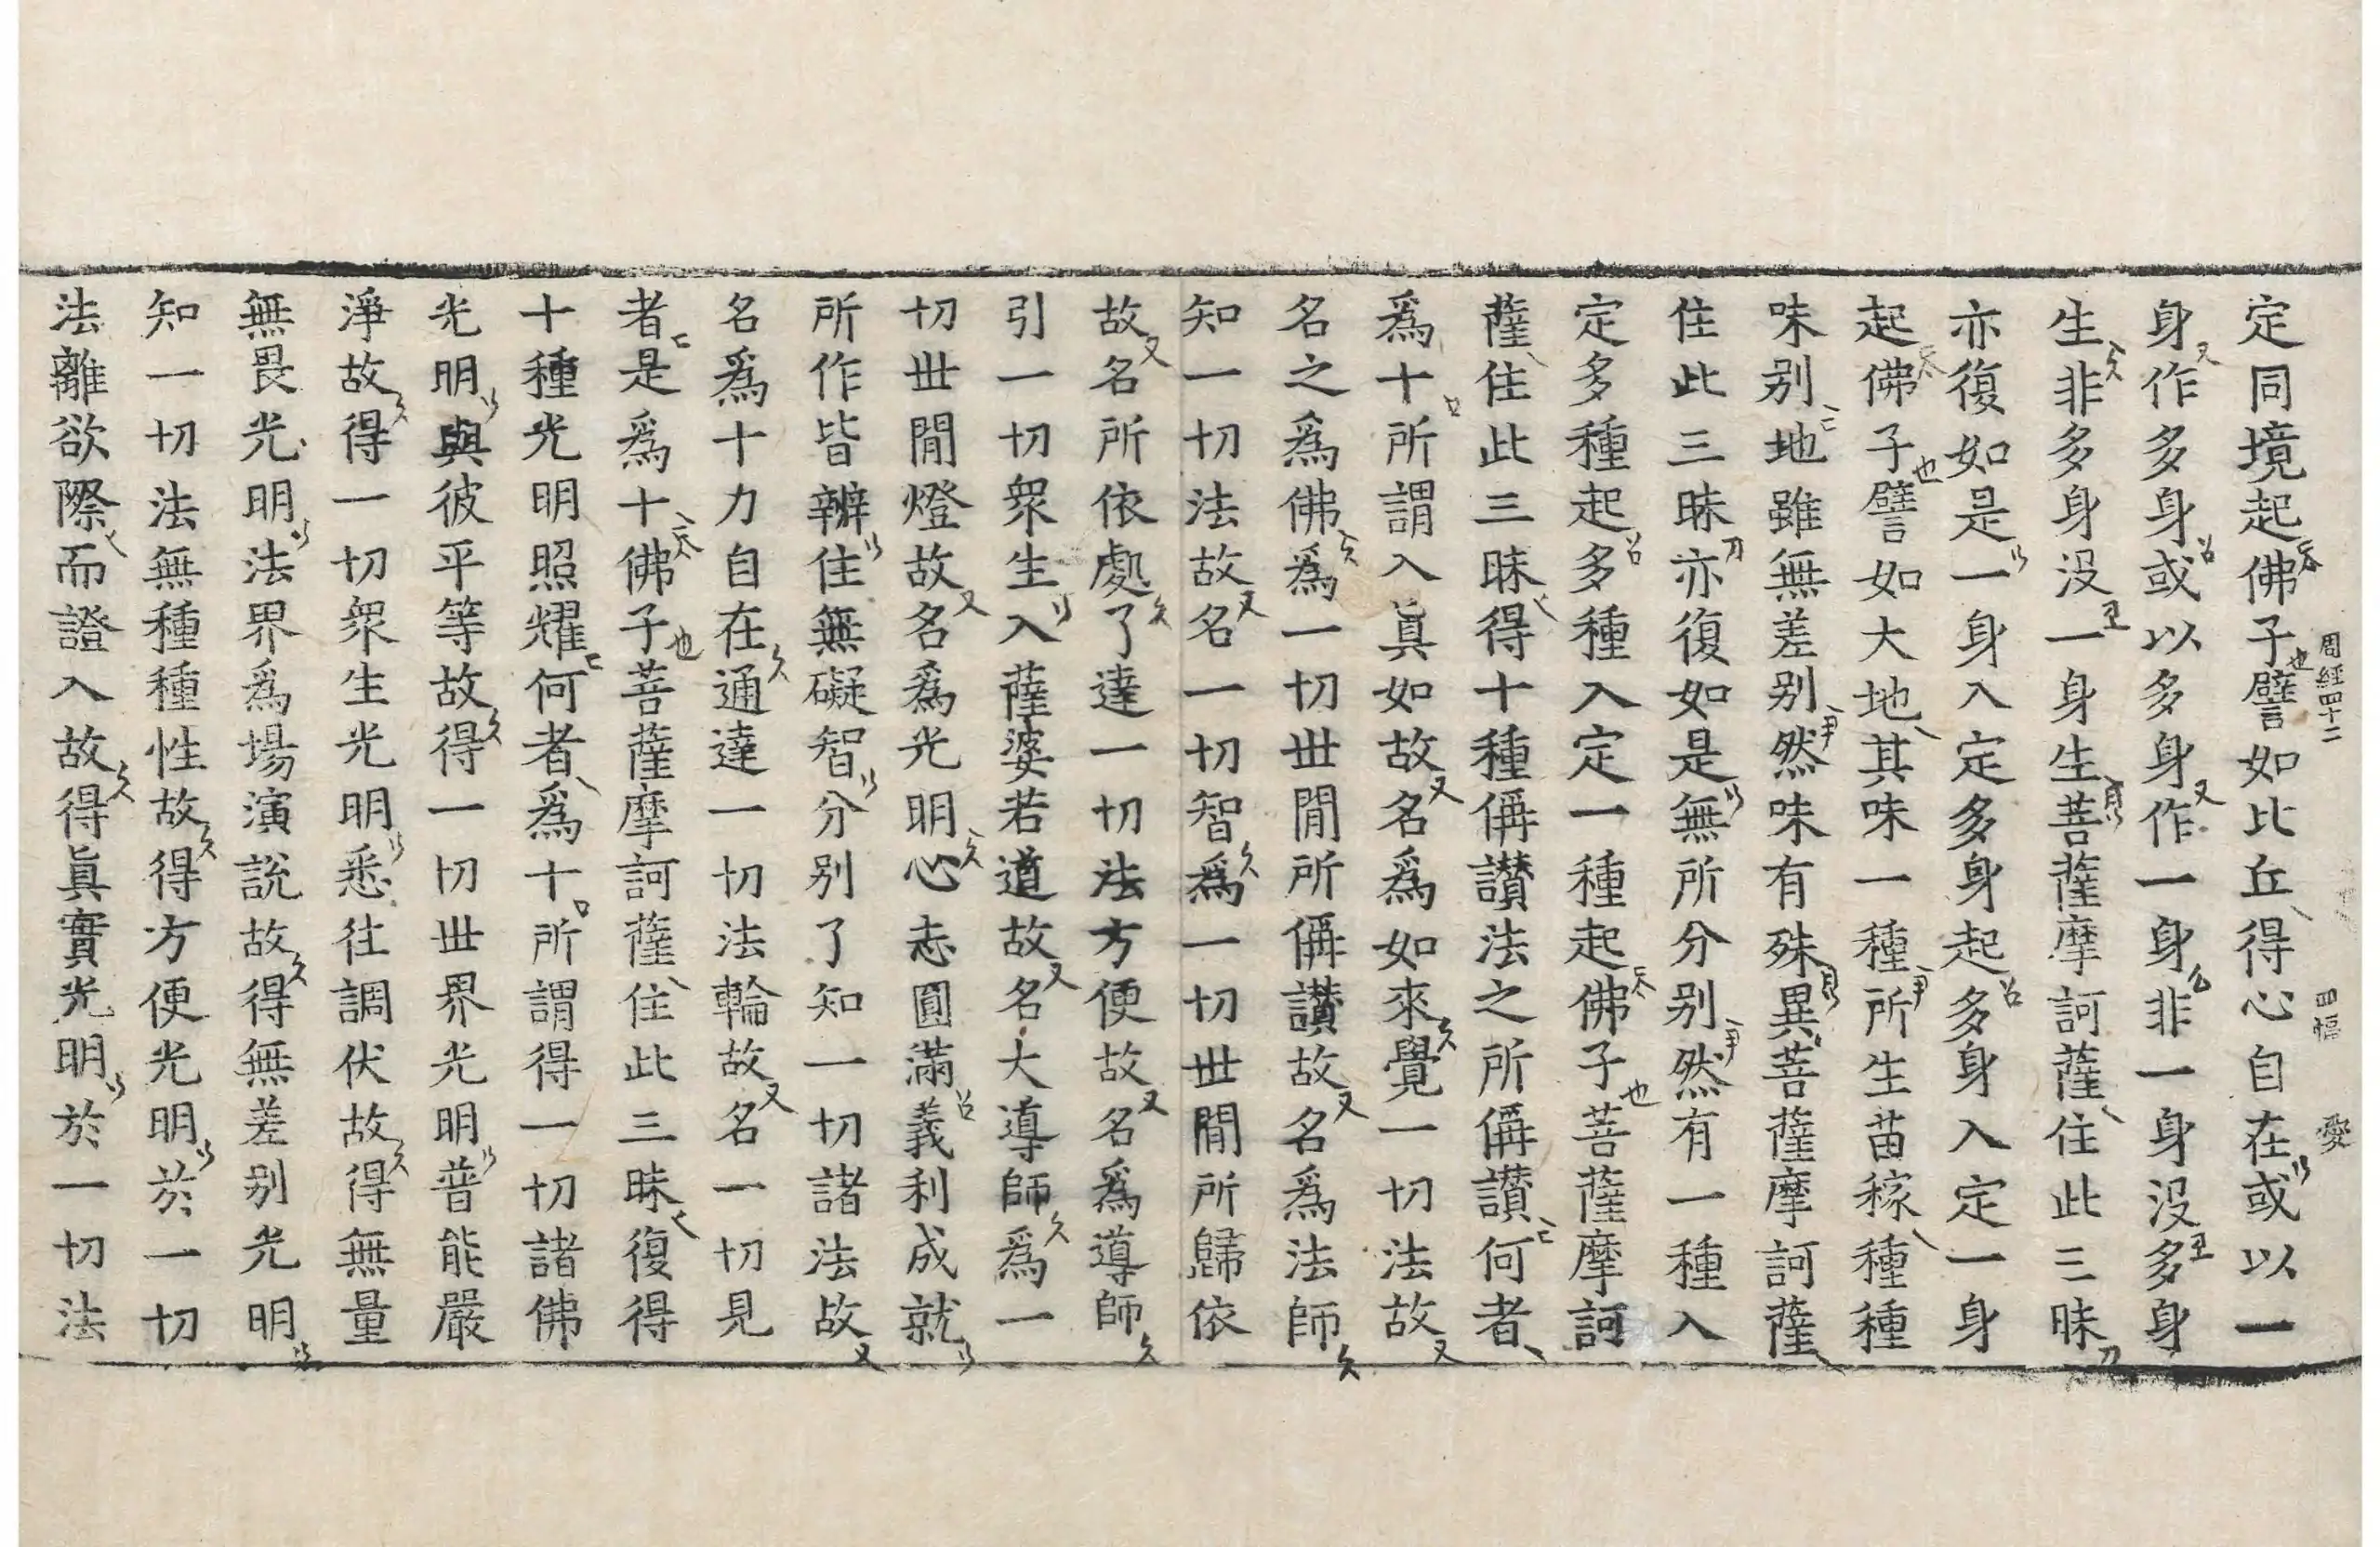 周經四十二 四幅 愛
定同境起佛子譬如比丘得心自在或以一
身作多身或以多身作一身非一身没多身
生非多身没一身生菩薩摩訶薩住此三昧
亦復如是一身入定多身起多身入定一身
起佛子譬如大地其味一種所生苗稼種種
味别地雖無差别然味有殊異菩薩摩訶薩
住此三昧亦復如是無所分别然有一種入
定多種起多種入定一種起佛子菩薩摩訶
薩住此三昧得十種偁讃法之所偁讃何者
爲十所謂入眞如故名爲如來覺一切法故
名之爲佛爲一切世閒所偁讃故名爲法師
知一切法故名一切智爲一切世閒所歸依
故名所依處了達一切法方便故名爲導師
引一切衆生入薩婆若道故名大導師爲一
切世閒燈故名爲光明心志圓滿義利成就
所作皆辦住無礙智分别了知一切諸法故
名爲十力自在通達一切法輪故名一切見
者是爲十佛子菩薩摩訶薩住此三昧復得
十種光明照耀何者爲十所謂得一切諸佛
光明與彼平等故得一切世界光明普能嚴
淨故得一切衆生光明悉往調伏故得無量
無畏光明法界爲場演說故得無差别光明
知一切法無種種性故得方便光明於一切
法離欲際而證入故得眞實光明於一切法